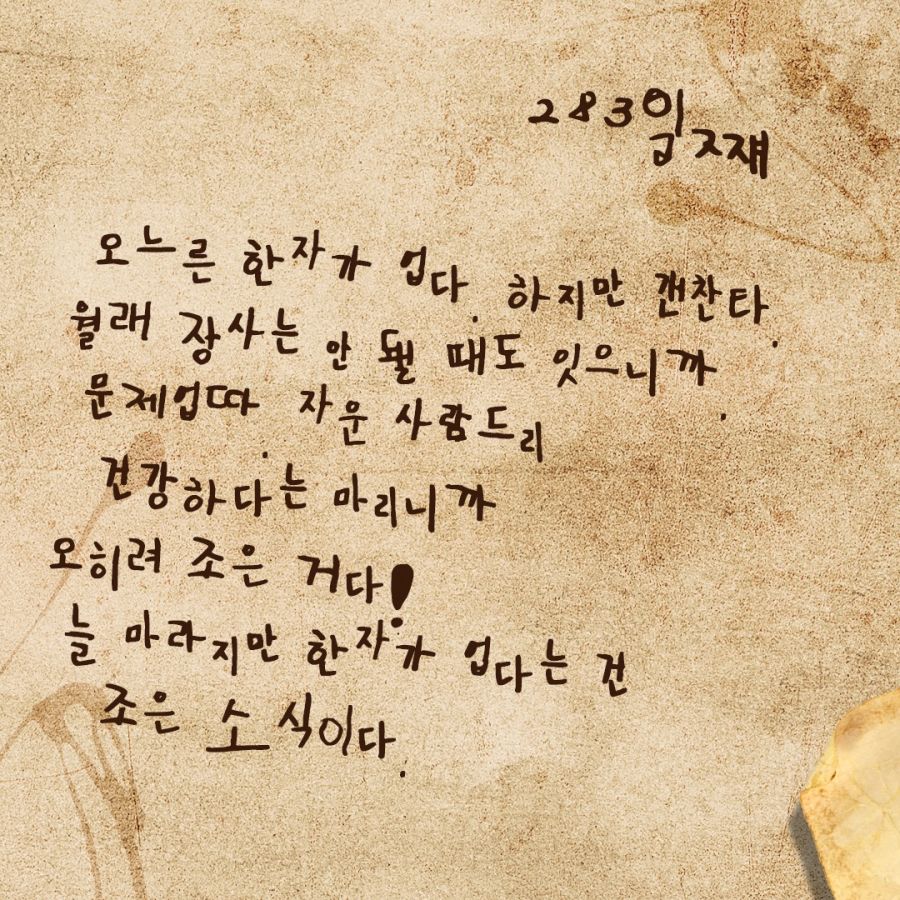 283입ㅈ재
오느른 한자가 업다. 하지만 갠찬타.
월래 장사는 안 됄 때도 잇으니까.
문제업따. 자운 사람드리
건강하다는 마리니까
오히려 조은 거다!
늘 마라지만 한자가 업다는 건
조은 소식이다.